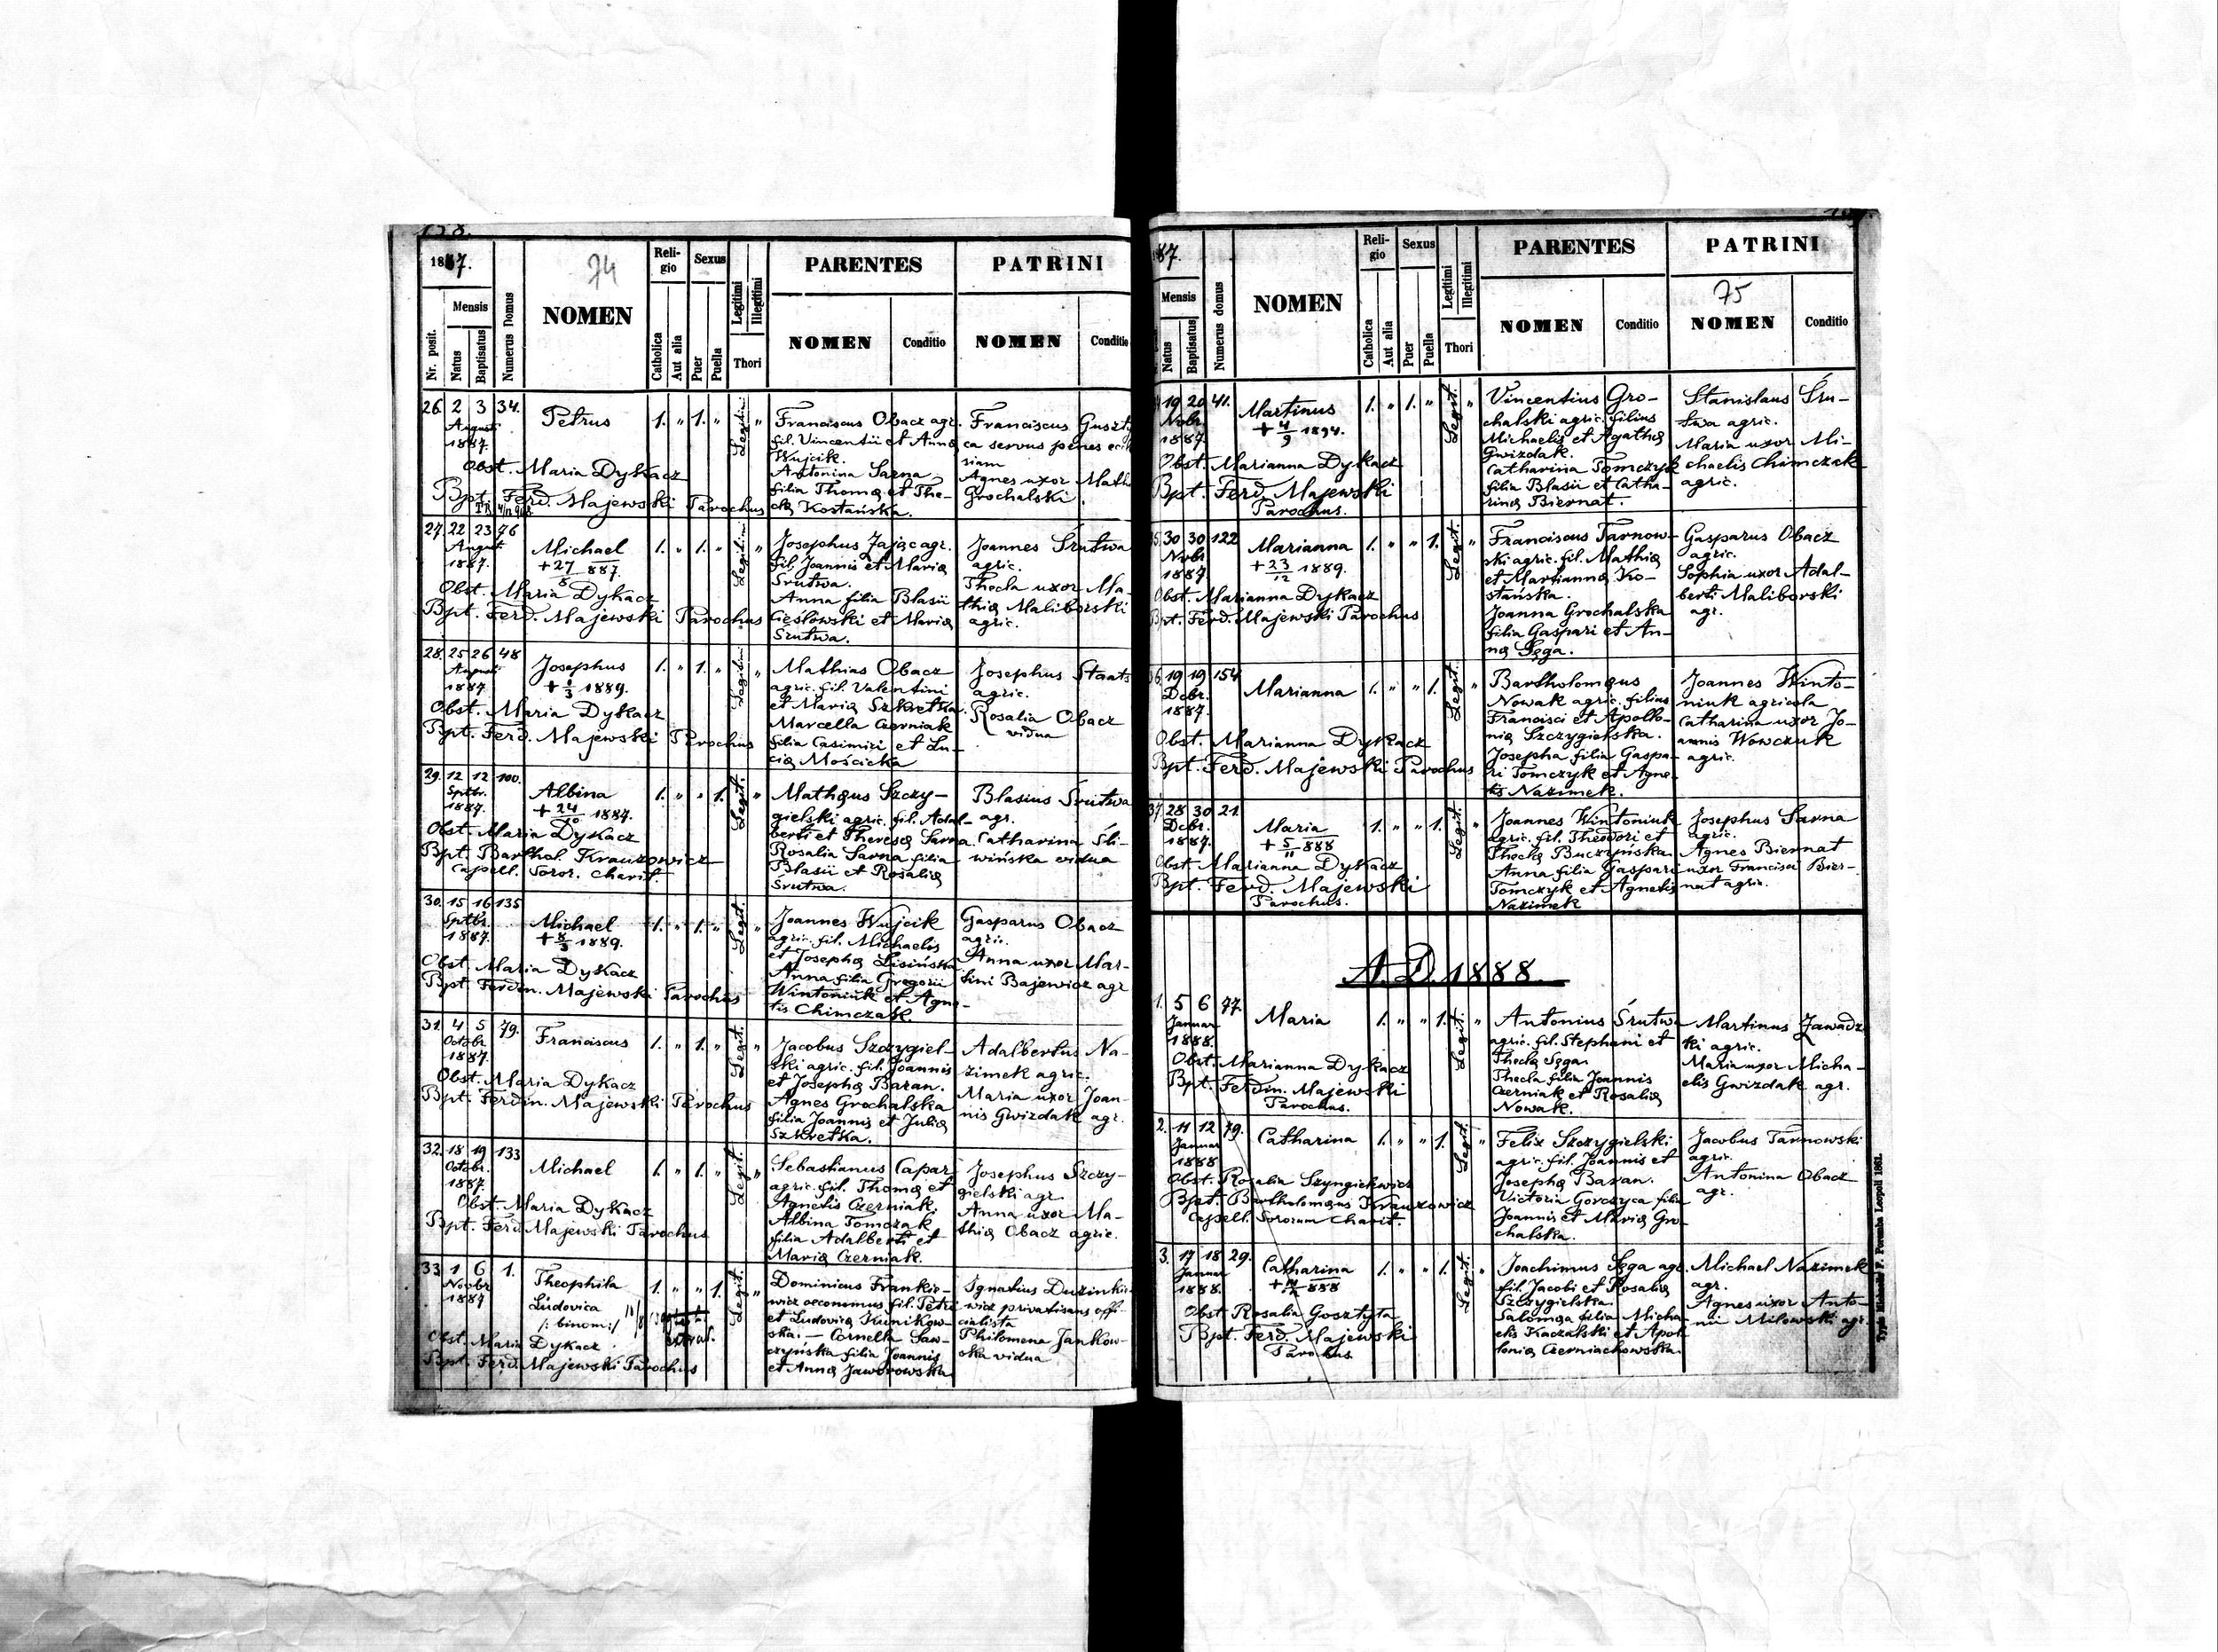 158.
1887.
74
Nr. posit.
Mensis
Natus
Baptisatus
Numerus Domus
NOMEN
Religio
Catholica
Aut alia
Sexus
Puer
Puella
Legitimi
Illegitimi
Thori
PARENTES
NOMEN
Conditio
PATRINI
NOMEN
Conditio
26. 2 3 34.
August
1887.
Petrus
1. " 1. "
Legitim.
Obst. Maria Dykacz
Bpt. Ferd. Majewski Parochus
Franciscus Obacz agr.
fil. Vincentii et Anna
Wujcik.
Antonina Sarna
filia Thomą et The-
clą Kostańska.
Franciscus Guszt
ca servus penes eccle
siam
Agnes uxor Math
Grochalski.
27. 22 23 76
August
1887.
Michael
+ 27/8 887.
1. " 1. "
Legitim.
Obst. Maria Dykacz
Bpt. Ferd. Majewski Parochus
Josephus Zając agr.
fil. Joannis et Marią
Śrutwa.
Anna filia Blasii
Cieślowski et Marią
Śrutwa.
Joannes Śrutwa
agric.
Thecla uxor Ma-
thią Maliborski
agric.
28. 25 26 48
August
1887.
Josephus
+ 1/3 1889.
1. " 1. "
Legitim.
Obst. Maria Dykacz
Bpt. Ferd. Majewski Parochus
Mathias Obacz
agric. fil. Valentini
et Marią Szkretka.
Marcella Czerniak
filia Casimiri et Lu-
cią Mościcka
Josephus Staats
agric.
Rosalia Obacz
vidua
29. 12 12 100.
Septbr.
1887.
Albina
+ 24/10 1887.
1. " " 1.
Legit.
Obst. Maria Dykacz
Bpt. Barthol. Krauzowicz
Capell. Soror. Charit.
Mathąus Szczy-
gielski agric. fil. Adal-
berti et Theresą Sarna.
Rosalia Sarna filia
Blasii et Rosalią
Śrutwa.
Blasius Śrutwa
agr.
Catharina Śli-
wińska vidua
30. 15 16 135
Septbr.
1887.
Michael
+ 8/3 1889.
1. " 1. "
Legit.
Obst. Maria Dykacz
Bpt. Ferdin. Majewski Parochus
Joannes Wujcik
agric. fil. Michaelis
et Josephą Lisińska
Anna filia Gregorii
Wintoniuk et Agne-
tis Chimczak.
Gasparus Obacz
agric.
Anna uxor Mar-
tini Bajewicz agr
31. 4 5 79.
Octobr.
1887.
Franciscus
1. " 1. "
Legit.
Obst. Maria Dykacz
Bpt. Ferdin. Majewski Parochus
Jacobus Szczygiel-
ski agric. fil. Joannis
et Josephą Baran.
Agnes Grochalska
filia Joannis et Julią
Szkretka.
Adalbertus Na-
zimek agric.
Maria uxor Joan-
nis Gwizdak agr.
32. 18 19 133
Octobr.
1887.
Michael
1. " 1. "
Legit.
Obst. Maria Dykacz
Bpt. Ferd. Majewski Parochus
Sebastianus Capar
agric. fil. Thomą et
Agnetis Czerniak.
Albina Tomczak
filia Adalberti et
Marią Czerniak.
Josephus Szczy-
gielski agr.
Anna uxor Ma-
thią Obacz agric.
33. 1 6 1.
Novbr
1887
Theophila
Ludovica
/: binom:/
1. " " 1.
Legit.
Obst. Maria Dykacz
Bpt. Ferd. Majewski Parochus
Dominicus Frankie-
wicz oeconomus fil. Petri
et Ludovicą Kunikow-
ska. — Cornelia Saw-
czyńska filia Joannis
et Anną Jaworowska
Ignatius Duzinkie
wicz privatisans offi-
cialista
Philomena Jankow-
ska vidua
87.
75
Mensis
Natus
Baptisatus
Numerus domus
NOMEN
Religio
Catholica
Aut alia
Sexus
Puer
Puella
Legitimi
Illegitimi
Thori
PARENTES
NOMEN
Conditio
PATRINI
NOMEN
Conditio
19 20 41.
Novbr.
1887.
Martinus
+ 4/9 1894.
1. " 1. "
Legit.
Obst. Marianna Dykacz
Bpt. Ferd. Majewski
Parochus.
Vincentius Gro-
chalski agric. filius
Michaelis et Agathą
Gwizdak.
Catharina Tomczyk
filia Blasii et Catha-
riną Biernat.
Stanislaus Śru-
twa agric.
Maria uxor Mi-
chaelis Chimczak
agric.
35. 30 30 122
Novbr.
1887.
Marianna
+ 23/12 1889.
1. " " 1.
Legit.
Obst. Marianna Dykacz
Bpt. Ferd. Majewski Parochus
Franciscus Tarnow-
ski agric. fil. Mathią
et Marianną Ko-
stańska.
Joanna Grochalska
filia Gaspari et An-
ną Sęga.
Gasparus Obacz
agric.
Sophia uxor Adal-
berti Maliborski
agr.
36. 19 19 154
Decbr.
1887.
Marianna
1. " " 1.
Legit.
Obst. Marianna Dykacz
Bpt. Ferd. Majewski Parochus
Bartholomąus
Nowak agric. filius
Francisci et Apollo-
nią Szczygielska.
Josepha filia Gaspa-
ri Tomczyk et Agne-
tis Nazimek.
Joannes Winto-
niuk agricola
Catharina uxor Jo-
annis Wowczuk
agric.
37. 28 30 21.
Decbr.
1887.
Maria
+ 5/11 888
1. " " 1.
Legit.
Obst. Marianna Dykacz
Bpt. Ferd. Majewski
Parochus.
Joannes Wintoniuk
agric. fil. Theodori et
Theclą Buczyńska.
Anna filia Gaspari
Tomczyk et Agnetis
Nazimek
Josephus Sarna
agric.
Agnes Biernat
uxor Francisci Bier-
nat agric.
A. D. 1888.
1. 5 6 77.
Januar
1888.
Maria
1. " " 1.
Legit.
Obst. Marianna Dykacz
Bpt. Ferdin. Majewski
Parochus.
Antonius Śrutwa
agric. fil. Stephani et
Theclą Sęga.
Thecla filia Joannis
Czerniak et Rosalią
Nowak.
Martinus Zawadz
ki agric.
Maria uxor Micha-
elis Gwizdak agr.
2. 11 12 79.
Januar
1888
Catharina
1. " " 1.
Legit.
Obst. Rosalia Szyngielewicz
Bpt. Bartholomąus Krauzowicz
Capell. Sororum Charit.
Felix Szczygielski
agric. fil. Joannis et
Josephą Baran.
Victoria Gorczyca filia
Joannis et Marią Gro-
chalska.
Jacobus Tarnowski
agric.
Antonina Obacz
agr.
3. 17 18 29.
Januar
1888.
Catharina
1. " " 1.
Legit.
Obst. Rosalia Gosztyta
Bpt. Ferd. Majewski
Parochus
Joachimus Sęga agr.
fil. Jacobi et Rosalią
Szczygielska.
Salomea filia Micha-
elis Kaczalski et Apol-
lonią Czerniachowska.
Michael Nazimek
agr.
Agnes uxor Anto-
nii Milowski agr.
Typis Michaelis F. Poremba Leopoli 1861.